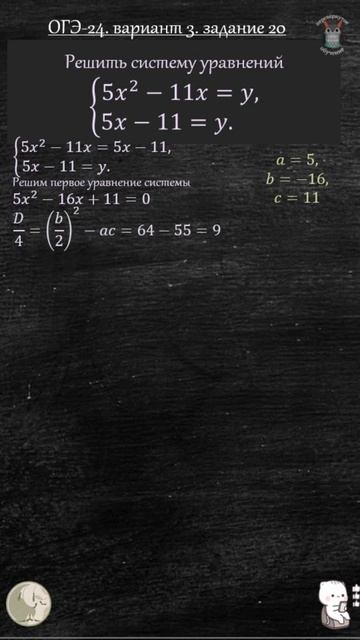 ОГЭ-24. вариант 3. задание 20
Решить систему уравнений
{5x² − 11x = y,
5x − 11 = y.
{5x² − 11x = 5x − 11,
5x − 11 = y.
Решим первое уравнение системы
5x² − 16x + 11 = 0
D/4 = (b/2)² − ac = 64 − 55 = 9
a = 5,
b = −16,
c = 11